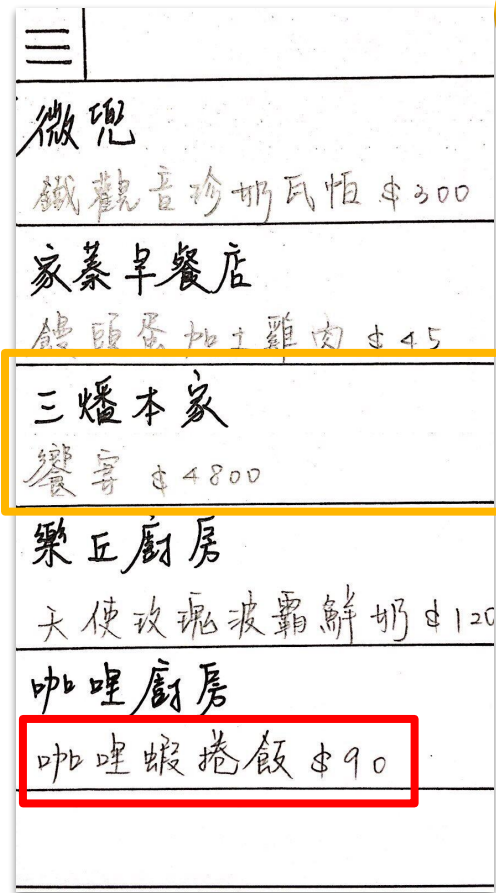 三
微兜
鐵觀音珍奶瓦帕 $300
家蓁早餐店
饅頭蛋加土雞肉 $45
三燔本家
饗宴 $4800
樂丘廚房
天使玫瑰波霸鮮奶 $120
咖哩廚房
咖哩蝦捲飯 $90